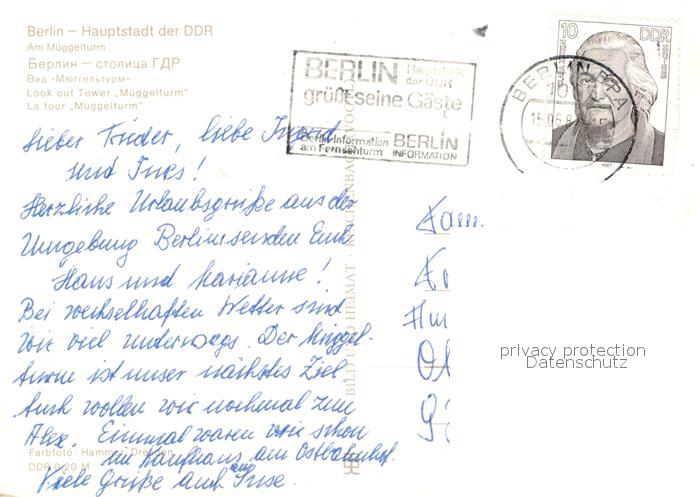 Berlin – Hauptstadt der DDR
Am Müggelturm
Берлин — столица ГДР
Вид «Мюггельтурм»
Look out Tower „Müggelturm“
La tour „Müggelturm“
BERLIN Hauptstadt der DDR
grüßt seine Gäste
Berlin-Information am Fernsehturm
BERLIN INFORMATION
BERLIN
10 DDR
1987
Lieber Frieder, liebe Ingrid
und Ines!
Herzliche Urlaubsgrüße aus der
Umgebung Berlins senden Euch
Hans und Marianne!
Bei wechselhaften Wetter sind
wir viel unterwegs. Der Müggel-
turm ist unser nächstes Ziel
Auch wollen wir nochmal zum
Alex. Einmal waren wir schon
im Kaufhaus am Ostbahnhof.
Viele Grüße auch an
Fam.
BILD UND HEIMAT · REICHENBACH (VOGTL)
privacy protection
Datenschutz
Farbfoto: Hammer, Dresden
DDR 0,20 M